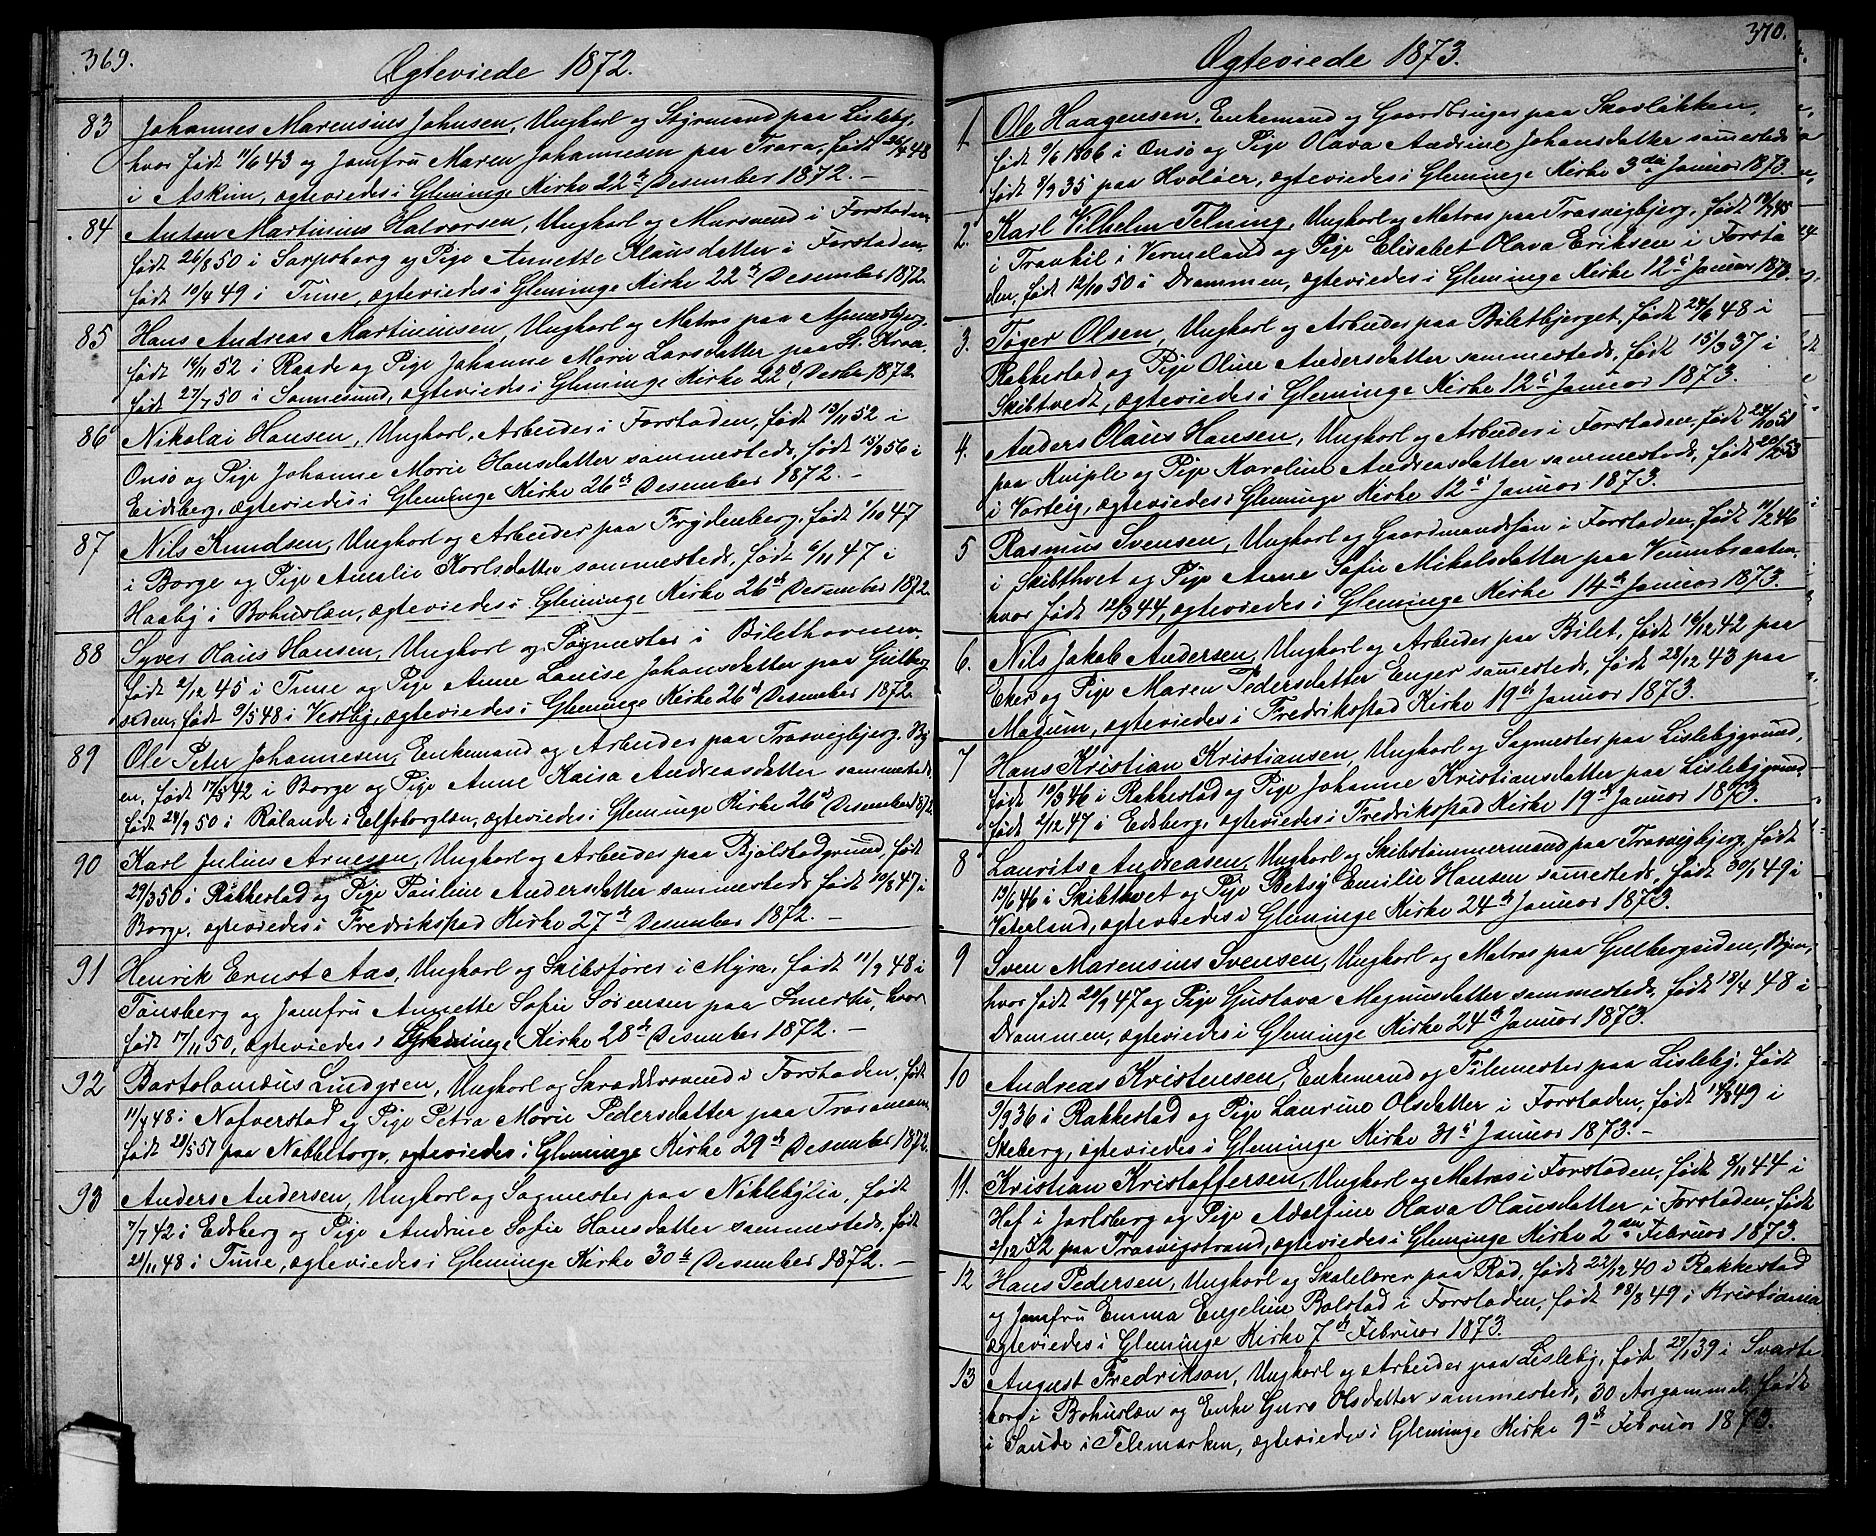 369.
Ægteviede 1872.
83 Johannes Marensius Johnsen, Ungkarl og Styrmand paa Lisleby,
hvor født 11/6 43 og Jomfru Maren Johannesen paa Trara, født 48
i Askim, ægteviedes i Gleminge Kirke 22d Desember 1872. —
84 Anton Martinius Halvorsen, Ungkarl og Mursvend i Forstaden,
født 26/8 50 i Sarpsborg og Pige Annette Klausdatter i Forstaden,
født 10/4 49 i Tune, ægteviedes i Gleminge Kirke 22d Desember 1872.
85 Hans Andreas Martinussen, Ungkarl og Matros paa
født 19/11 52 i Raade og Pige Johanne Marie Larsdatter paa St. Kraa,
født 27/7 50 i Sannesund, ægteviedes i Gleminge Kirke 22d, Desbr 1872.
86 Nikolai Hansen, Ungkarl, Arbeider i Forstaden, født 13/11 52 i
Onsø og Pige Johanne Marie Hansdatter sammesteds, født 15/8 56 i
Eidsberg, ægteviedes i Gleminge Kirke 26d Desember 1872. —
87 Nils Knudsen, Ungkarl og Arbeider paa Frydenberg, født 1/10 47
i Borge og Pige Amalie Karlsdatter sammesteds, født 6/11 47 i
Haaby i Bohuslæn, ægteviedes i Gleminge Kirke 26d Desember 1872.
88 Syver Olaus Hansen, Ungkarl og Sagmester i Bilethavnen,
født 2/12 45 i Tune og Pige Anne Louise Johansdatter paa Gjelberg
siden, født 9/5 48 i Vestby, ægteviedes i Gleminge Kirke 26d Desember 1872.
89 Ole Peter Johannesen, Enkemand og Arbeider paa Trosvigbjerg, By
en, født 17/5 42 i Borge og Pige Anne Kaisa Andreasdatter sammesteds,
født 24/9 50 i Rölanda i Elfsborglæn, ægteviedes i Gleminge Kirke 26d Desember 1872.
90 Karl Julius Arnesen, Ungkarl og Arbeider paa Bjølstadgrund, født
29/3 50 i Rakkestad og Pige Pauline Andersdatter sammesteds født 10/8 47 i
Borge, ægteviedes i Fredrikstad Kirke 27d Desember 1872. —
91 Henrik Ernst Aas, Ungkarl og Skibsfører i Myra, født 11/9 48 i
Tønsberg og Jomfru Annette Sofie Sørensen paa Smertu, hvor
født 17/11 50, ægteviedes i Gleminge Kirke 28d Desember 1872. —
92 Bartolomæus Lindgren, Ungkarl og Skræddersvend i Forstaden, født
11/7 48 i Nafverstad og Pige Petra Marie Pedersdatter paa
født 28/5 51 paa Nabbetorp, ægteviedes i Gleminge Kirke 29d Desember 1872.
93 Anders Andersen, Ungkarl og Sagmester paa Nøklebylia, født
7/7 42 i Edsberg og Pige Andrine Sofie Hansdatter sammesteds, født
21/11 48 i Tune, ægteviedes i Gleminge Kirke 30d Desember 1872. —
370.
Ægteviede 1873.
1 Ole Haagensen, Enkemand og Gaardbruger paa Skovløkken,
født 9/6 1806 i Onsø og Pige Olava Andrine Johansdatter sammesteds
født 8/9 35 paa Hvaløer, ægteviedes i Gleminge Kirke 3die Januar 1873.
2. Karl Vilhelm Telning, Ungkarl og Matros paa Trosvigbjerg, født 45
i Trankil i Vermeland og Pige Elisabet Olava Eriksen i Forsta
den, født 12/10 50 i Drammen, ægteviedes i Gleminge Kirke 12te Januar 1873.
3. Tøger Olsen, Ungkarl og Arbeider paa Biletbjerget, født 24/6 48 i
Rakkestad og Pige Oline Andersdatter sammesteds, født 15/3 37 i
Skibtvedt, ægteviedes i Gleminge Kirke 12te Januar 1873.
4. Anders Olaus Hansen, Ungkarl og Arbeider i Forstaden, født 24/10 51
paa Kniple og Pige Karoline Andreasdatter sammesteds, født 20/12 53
i Varteig, ægteviedes i Gleminge Kirke 12te Januar 1873.
5 Rasmus Svensen, Ungkarl og Gaardmandssøn i Forstaden, født 11/2 46
i Skibthvet og Pige Anne Sofie Mikalsdatter paa Veumbraaten,
hvor født 12/3 44, ægteviedes i Gleminge Kirke 14d Januar 1873.
6. Nils Jakob Andersen, Ungkarl og Arbeider paa Bilet, født 16/12 42 paa
Eker og Pige Maren Pedersdatter Enger sammesteds, født 28/12 43 paa
Magum, ægteviedes i Fredrikstad Kirke 19d Januar 1873.
7 Hans Kristian Kristiansen, Ungkarl og Sagmester paa Lislebygrund,
født 10/3 46 i Rakkestad og Pige Johanne Kristiansdatter paa Lislebygrund,
født 2/12 47 i Edsberg, ægteviedes i Fredrikstad Kirke 19d Januar 1873.
8 Laurits Andreasen, Ungkarl og Skibstømmermand paa Trosvigbjerg, født
13/6 46 i Skibthvet og Pige Betsy Emilie Hansen sammesteds, født 30/1 49 i
Veterland, ægteviedes i Gleminge Kirke 24d Januar 1873.
9 Sven Marensius Svensen, Ungkarl og Matros paa Gjelbergsiden, Byen,
hvor født 20/9 47 og Pige Gustava Magnusdatter sammesteds, født 18/4 48 i
Drammen, ægteviedes i Gleminge Kirke 24d Januar 1873.
10 Andreas Kristensen, Enkemand og Filemester paa Lisleby, født
9/9 36 i Rakkestad og Pige Laurine Olsdatter i Forstaden, født 14/8 49 i
Skeberg, ægteviedes i Gleminge Kirke 31te Januar 1873. —
11. Kristian Kristoffersen, Ungkarl og Matros i Forstaden, født 8/11 44 i
Haf i Jarlsberg og Pige Adolfine Olava Olausdatter i Forstaden, født
2/12 52 paa Trosvigstrand, ægteviedes i Gleminge Kirke 2den Februar 1873.
12 Hans Pedersen, Ungkarl og Skolelærer paa Rød, født 22/12 40 i Rakkestad
og Jomfru Emma Engeline Bolstad i Forstaden, født 28/8 49 i Kristiania
ægteviedes i Gleminge Kirke 7d Februar 1873.
13 August Fredrikson, Ungkarl og Arbeider paa Lisleby, født 29/1 39 i Svarte
borg i Bohuslæn og Enke Guro Olsdatter sammesteds, 30 Aar gammel, født
i Saude i Telemarken, ægteviedes i Gleminge Kirke 9d Februar 1873.